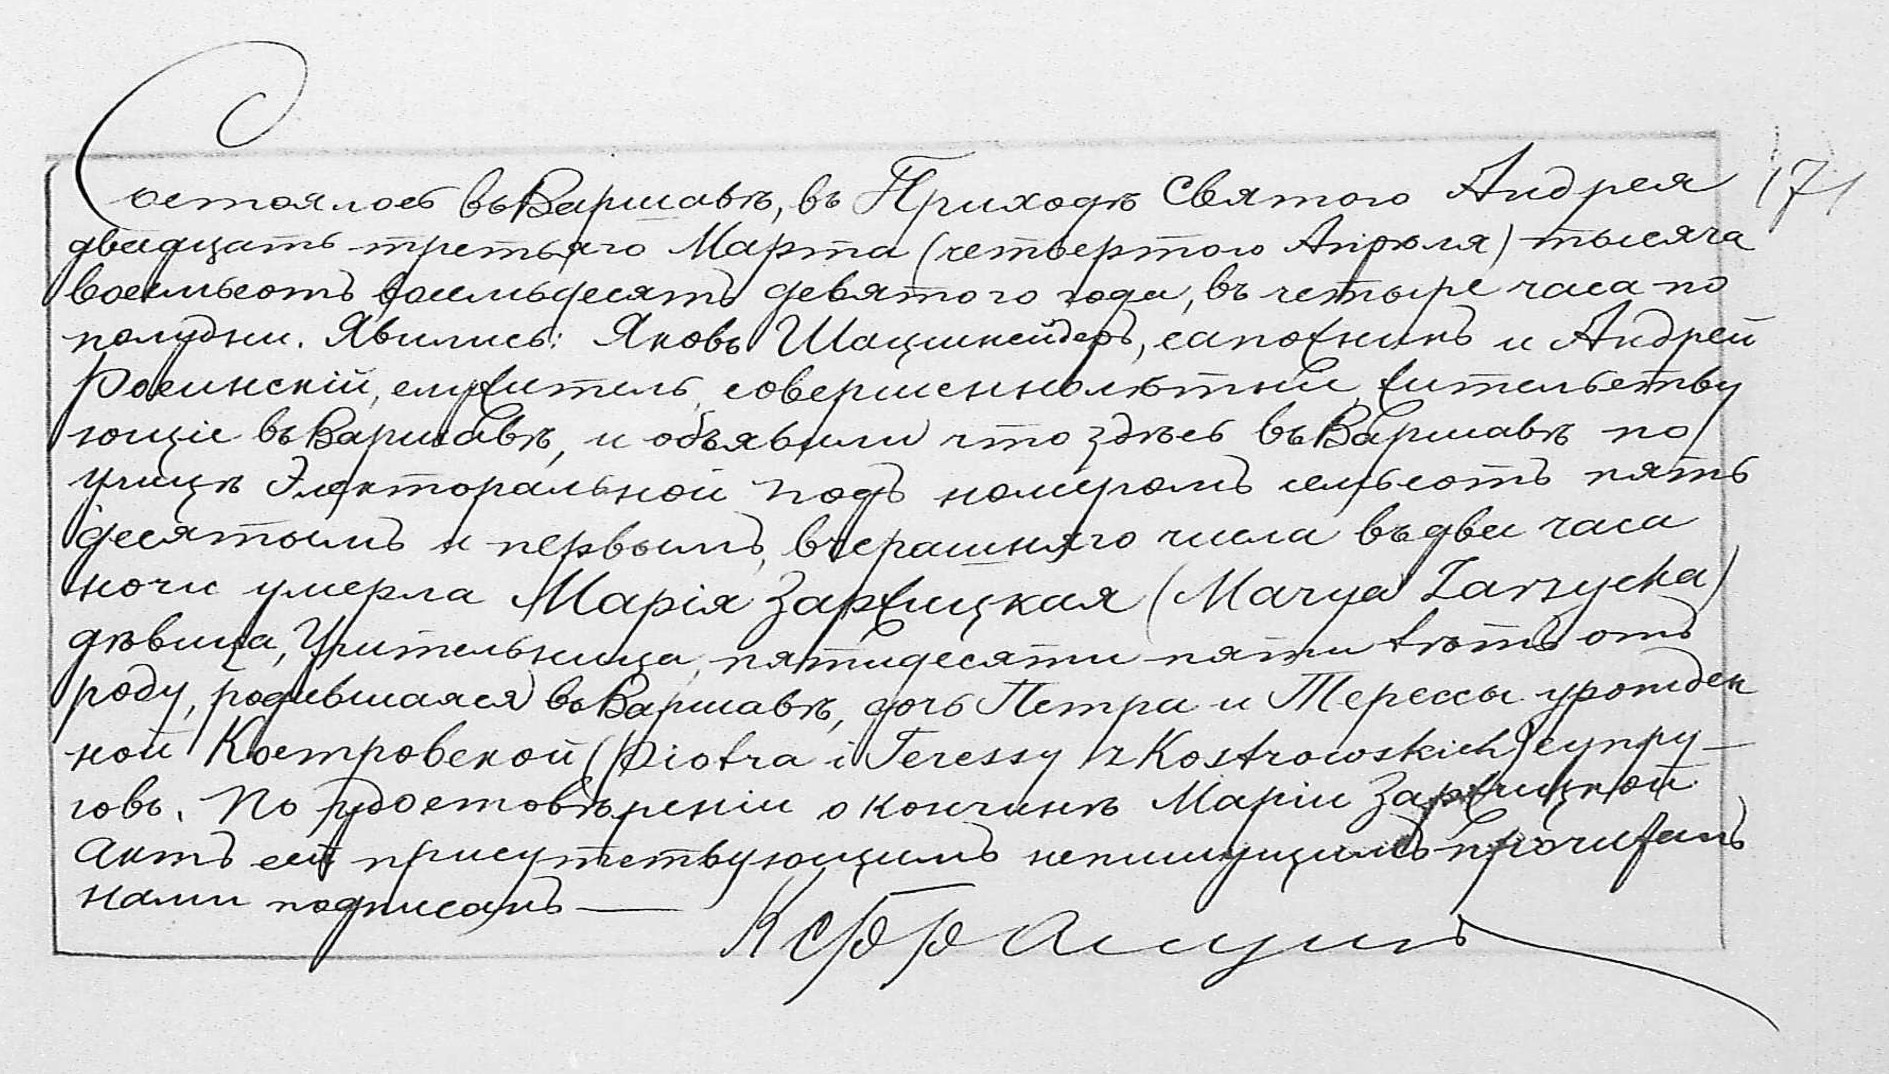 Состоялось въ Варшавѣ, въ Приходѣ Святого Андрея 171
двадцать третьяго Марта (четвертого Апрѣля) тысяча
восемьсотъ восемьдесятъ девятого года, въ четыре часа по
полудни. Явились: Яковъ Шацшнейдеръ, сапожникъ и Андрей
Росинскій, служитель, совершеннолѣтніе, жительству
ющіе въ Варшавѣ, и объявили что здѣсь въ Варшавѣ по
улицѣ Электоральной подъ номеромъ семьсотъ пять
десятымъ и первымъ, вчерашняго числа въ два часа
ночи умерла Марія Заржицкая (Marya Zarzycka)
дѣвица, Учительница, пятидесяти пяти лѣтъ отъ
роду, родившаяся въ Варшавѣ, дочь Петра и Терессы урожден
ной Костровской (Piotra i Teressy z Kostrowskich) супру-
говъ. По удостовѣреніи о кончинѣ Маріи Заржицкой
Актъ сей присутствующимъ непишущимъ прочитанъ
нами подписанъ —